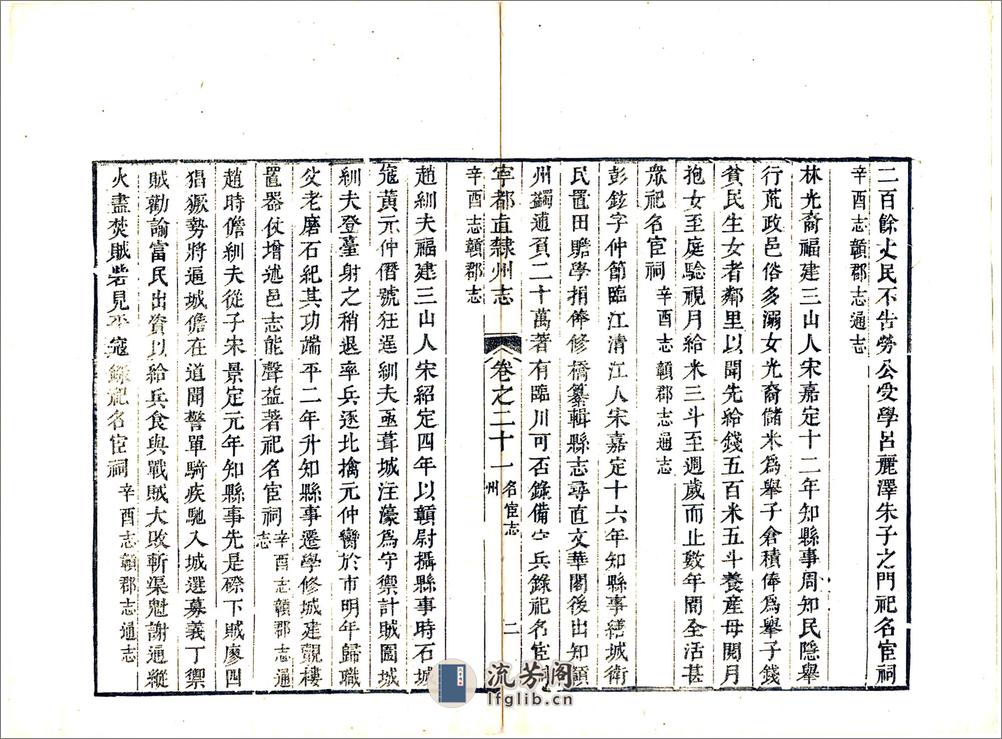 二百餘丈民不告勞公受學呂麗澤朱子之門祀名宦祠
辛酉志贛郡志通志
林光裔福建三山人宋嘉定十二年知縣事周知民隱舉
行荒政邑俗多溺女光裔儲米爲舉子倉積俸爲舉子錢
貧民生女者鄰里以聞先給錢五百米五斗養產母閱月
抱女至庭驗視月給米三斗至週歲而止數年間全活甚
眾祀名宦祠辛酉志贛郡志通志
彭鉉字仲節臨江清江人宋嘉定十六年知縣事繕城衛
民置田贍學捐俸修橋纂輯縣志尋直文華閣後出知贛
州蠲逋負二十萬著有臨川可否錄備 兵錄祀名宦祠
辛酉志贛郡志
寧都直隸州志
卷之二十一
名宦志
州
二
趙紃夫福建三山人宋紹定四年以贛尉攝縣事時石城
寇黃元仲僭號狂逞紃夫亟葺城注濠爲守禦計賊圍城
紃夫登臺射之稍退率兵逐北擒元仲臠於市明年歸職
父老磨石紀其功端平二年升知縣事遷學修城建觀樓
置器仗增述邑志能聲益著祀名宦祠辛酉志贛郡志通志
趙時儋紃夫從子宋景定元年知縣事先是磜下賊廖四
猖獗勢將逼城儋在道聞警單騎疾馳入城選募義丁禦
賊勸諭富民出資以給兵食與戰賊大敗斬渠魁謝通縱
火盡焚賊砦見平寇錄祀名宦祠辛酉志贛郡志通志
流芳閣
lfglib.cn